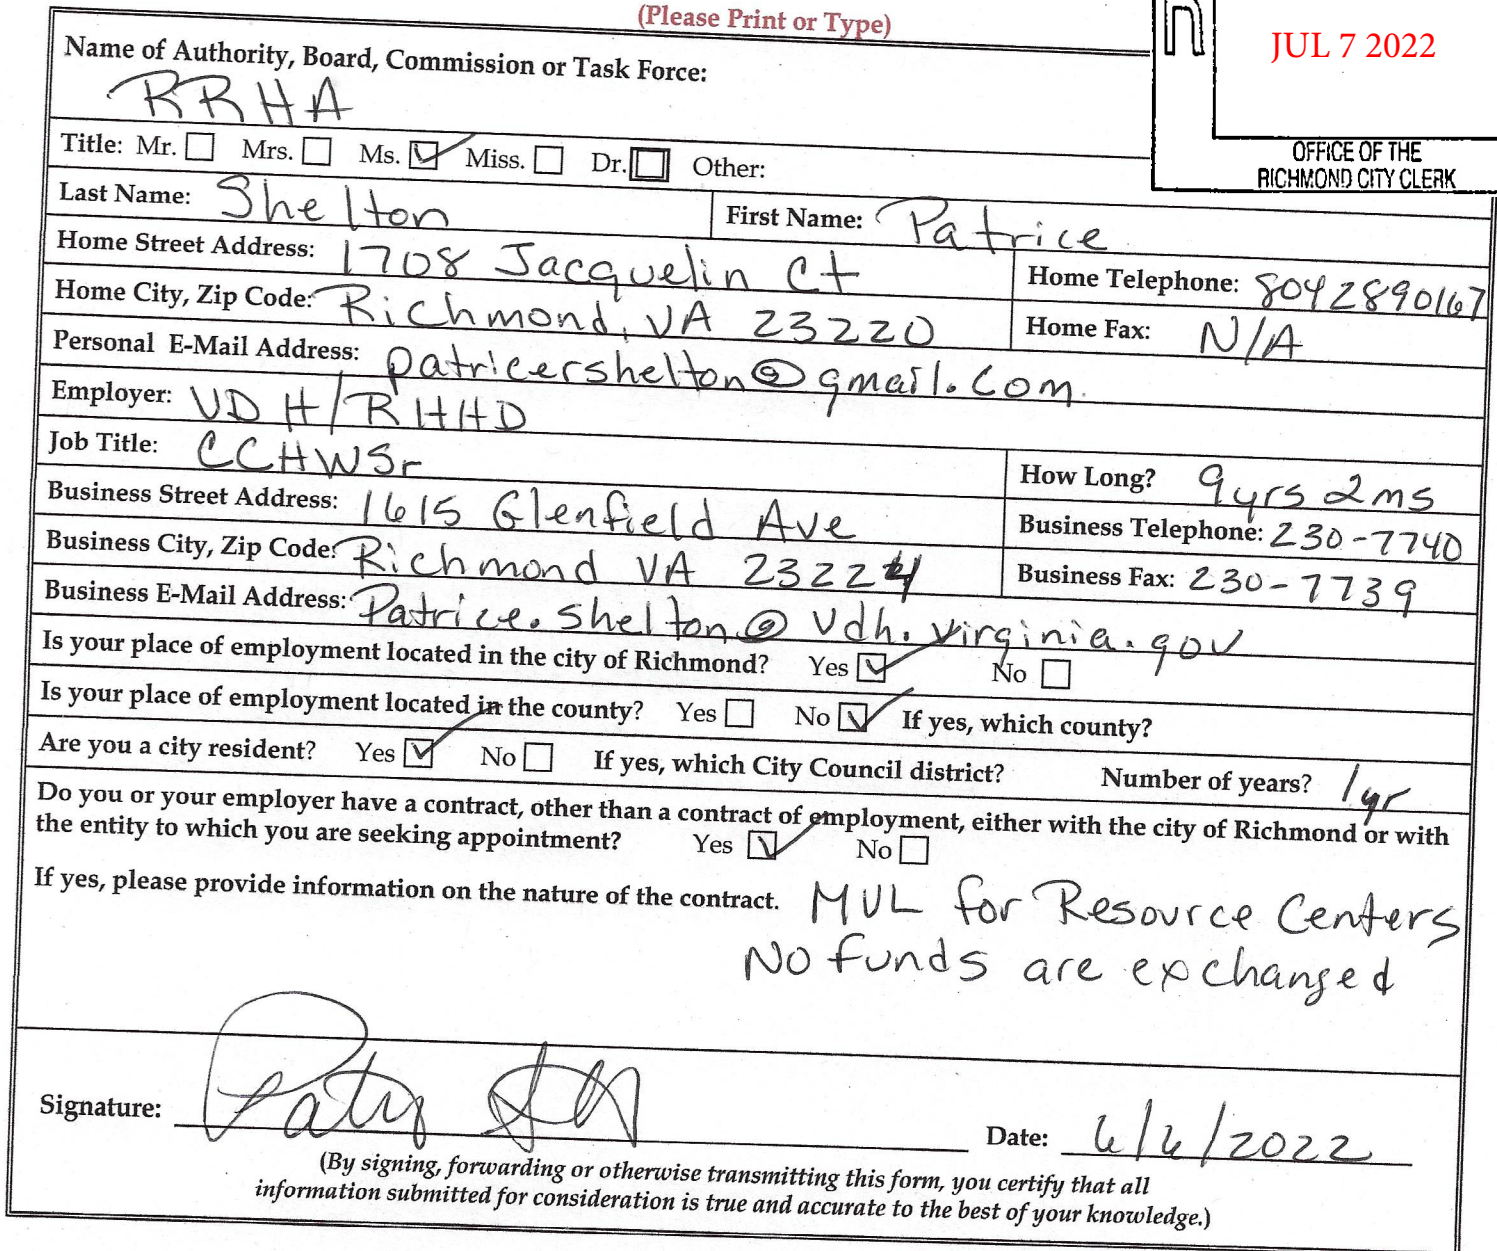 (Please Print or Type)
JUL 7 2022
OFFICE OF THE
RICHMOND CITY CLERK
Name of Authority, Board, Commission or Task Force:
RRHA
Title: Mr. Mrs. Ms. Miss. Dr. Other:
Last Name: Shelton First Name: Patrice
Home Street Address: 1708 Jacquelin Ct Home Telephone: 8042890167
Home City, Zip Code: Richmond, VA 23220 Home Fax: N/A
Personal E-Mail Address: patricershelton@gmail.com
Employer: VDH/RHHD
Job Title: CCHWSr How Long? 9yrs 2ms
Business Street Address: 1615 Glenfield Ave Business Telephone: 230-7740
Business City, Zip Code: Richmond VA 23224 Business Fax: 230-7739
Business E-Mail Address: Patrice.shelton@vdh.virginia.gov
Is your place of employment located in the city of Richmond? Yes No
Is your place of employment located in the county? Yes No If yes, which county?
Are you a city resident? Yes No If yes, which City Council district? Number of years? 1yr
Do you or your employer have a contract, other than a contract of employment, either with the city of Richmond or with
the entity to which you are seeking appointment? Yes No
If yes, please provide information on the nature of the contract. MUL for Resource Centers
No funds are exchanged
Signature: Date: 6/6/2022
(By signing, forwarding or otherwise transmitting this form, you certify that all
information submitted for consideration is true and accurate to the best of your knowledge.)